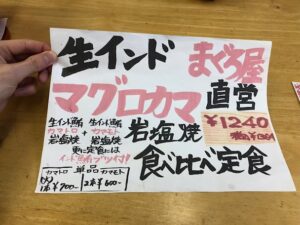 生インド まぐろ屋
マグロカマ 直営
生インド鮪 生インド鮪
カマトロ + カマモト
岩塩焼 岩塩焼
岩塩焼 ¥1240
更に定食には
インド鮪ブツ付
食べ比べ定食
単品
カマトロ カマモト
1本¥700- 2本¥600-